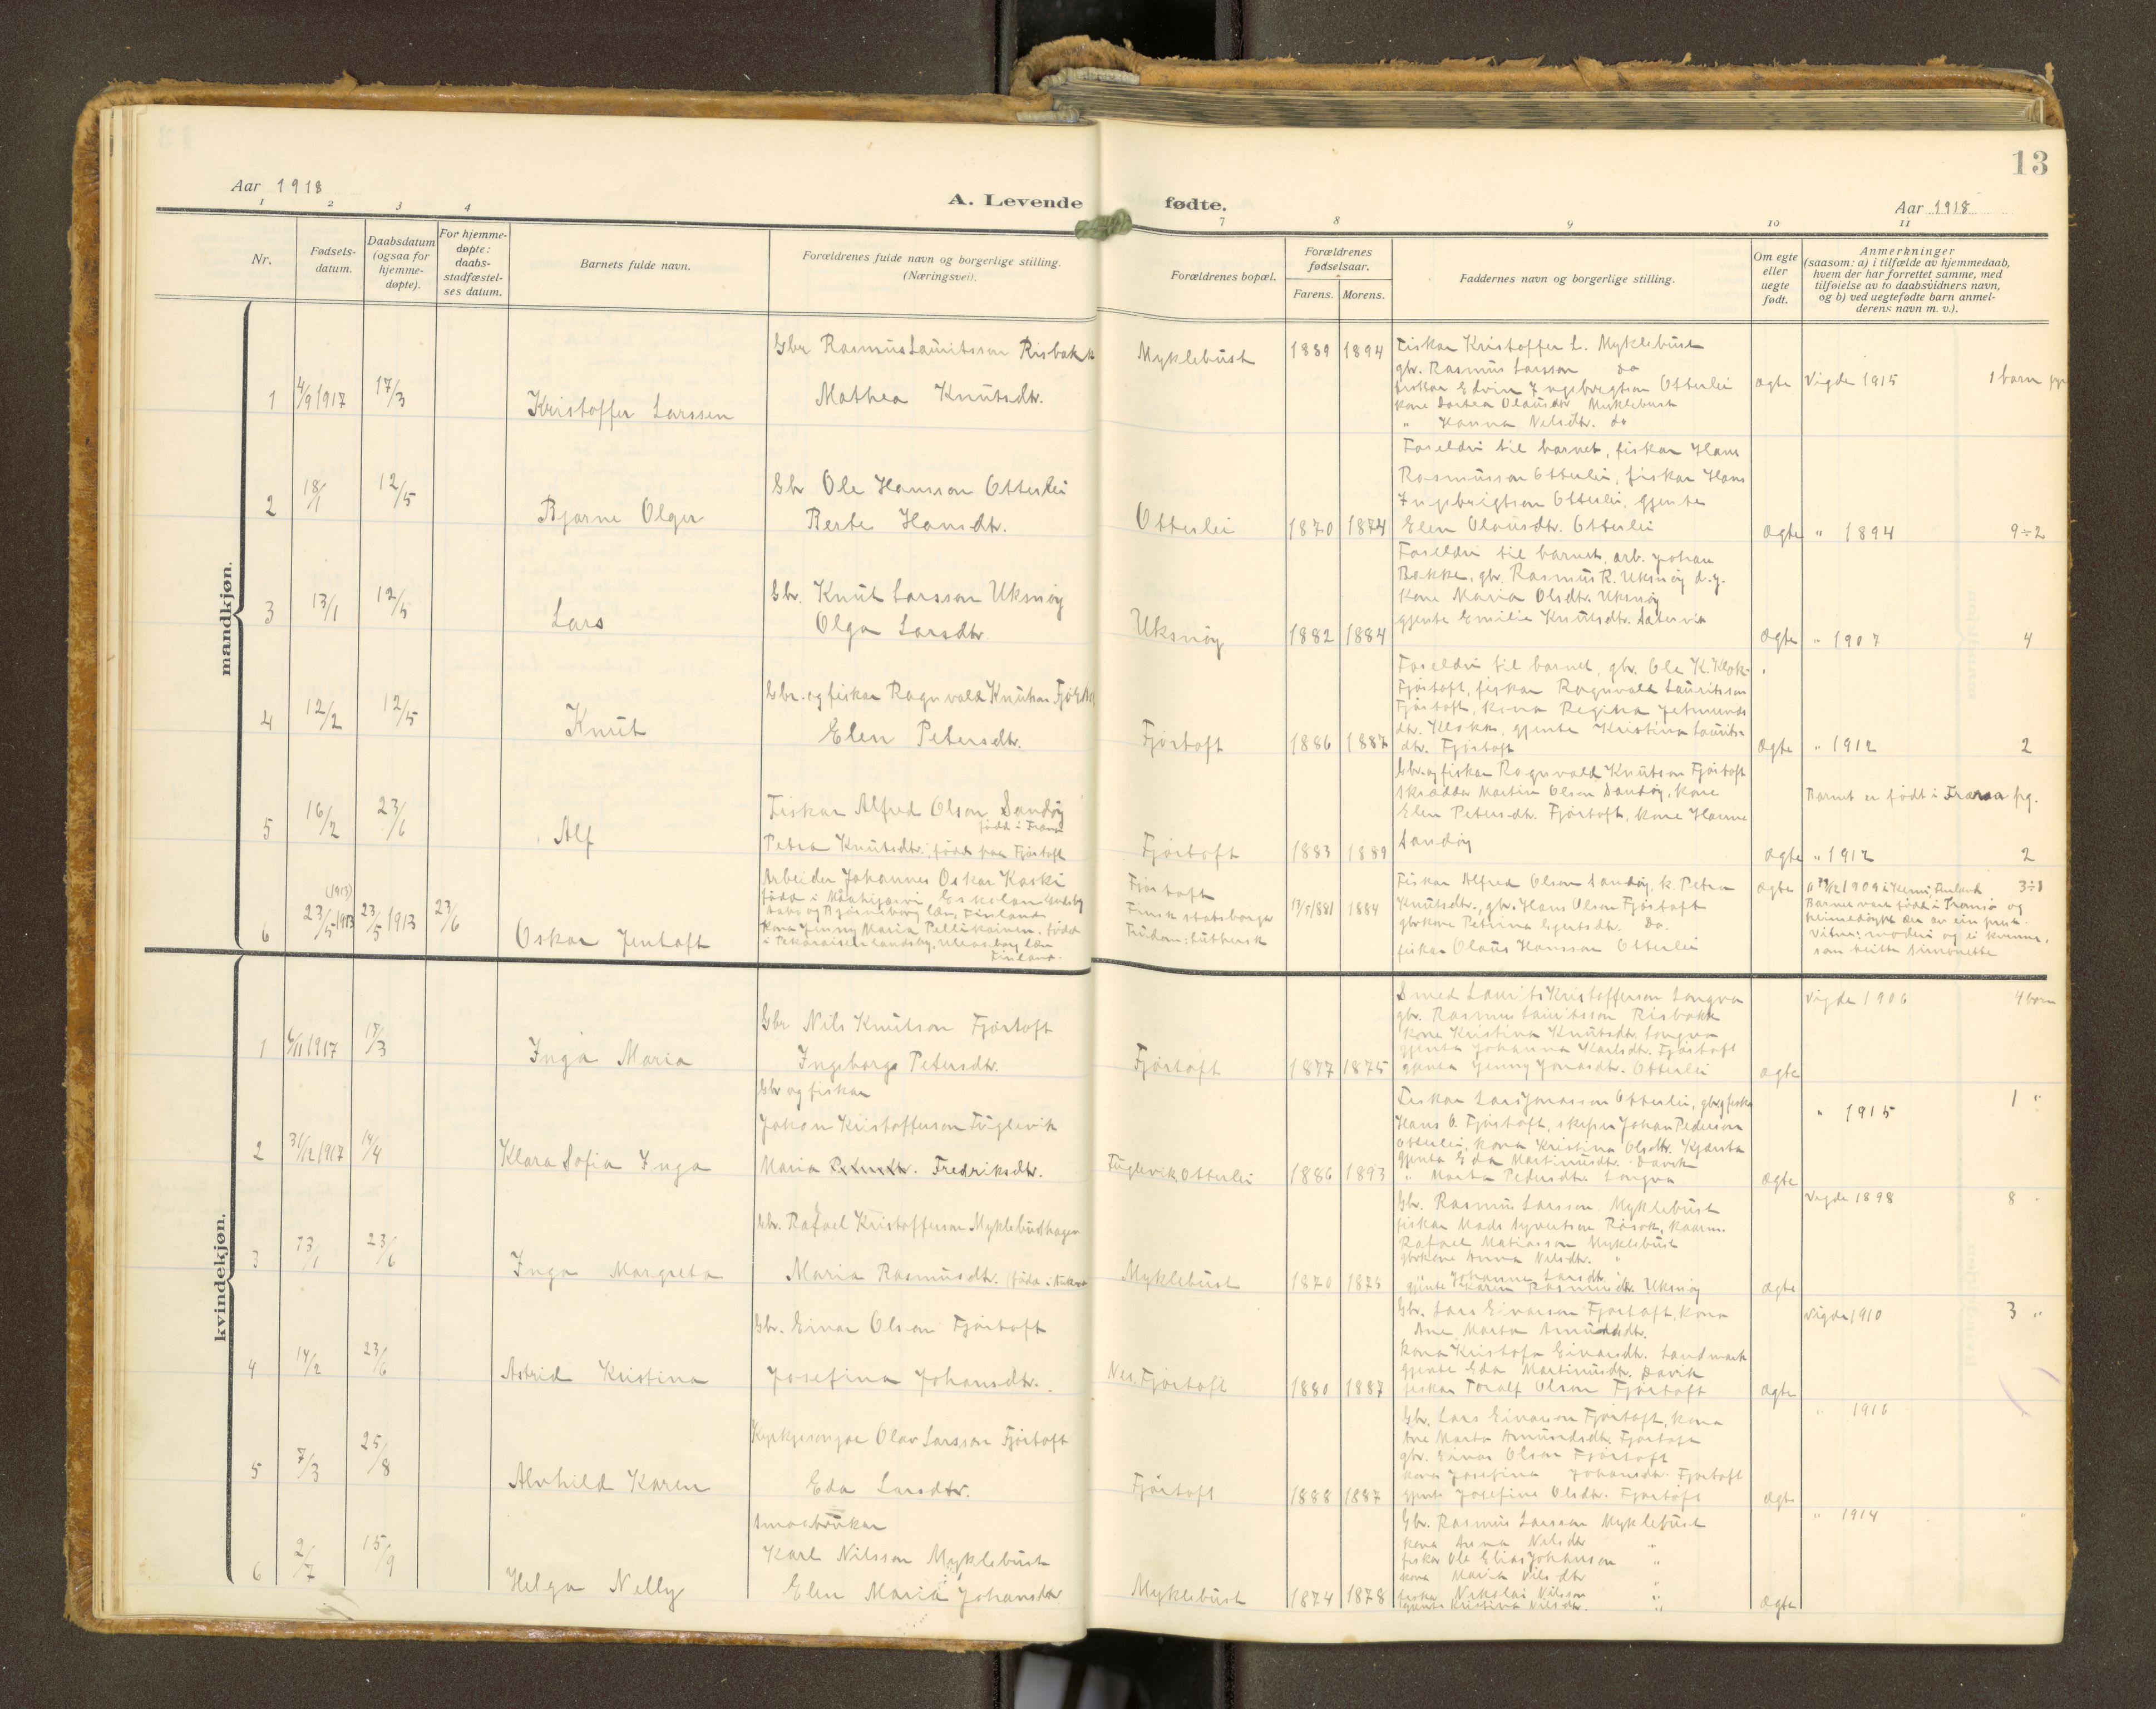 13
Aar 1918
A. Levende fødte.
Aar 1918
1 2 3 4 7 8 9 10 11
Nr.
Fødsels-
datum.
Daabsdatum
(ogsaa for
hjemme-
døpte).
For hjemme-
døpte:
daabs-
stadfæstel-
ses datum.
Barnets fulde navn.
Forældrenes fulde navn og borgerlige stilling.
(Næringsvei).
Forældrenes bopæl.
Forældrenes
fødselsaar.
Farens. Morens.
Faddernes navn og borgerlige stilling.
Om egte
eller
uegte
født.
Anmerkninger
(saasom: a) i tilfælde av hjemmedaab,
hvem der har forrettet samme, med
tilføielse av to daabsvidners navn,
og b) ved uegtefødte barn anmel-
derens navn m. v.).
mandkjøn.
1 4/9 1917 17/3 Kristoffer Larssen
Gbr Rasmus Lauritsson Risbakk
Mathea Knutsdtr.
Myklebust 1889 1894
Fiskar Kristoffer L. Myklebust
gbr. Rasmus Larsson do
fiskar Edvin Ingebrigtson Otterlei
kone Dorthea Olausdtr Myklebust
" Hanna Nilsdtr. do
ægte Vigde 1915 1 barn
2 18/1 12/5 Bjarne Olger
Gbr Ole Hansson Otterlei
Berte Hansdtr.
Otterlei 1870 1874
Foreldri til barnet, fiskar Hans
Rasmusson Otterlei, fiskar Hans
Ingebrigtson Otterlei, gjente
Elen Olausdtr. Otterlei
ægte " 1894 9÷2
3 13/1 12/5 Lars
Gbr. Knut Larsson Uksnøy
Olga Larsdtr.
Uksnøy 1882 1884
Foreldri til barnet, arb. Johan
Bakke, gbr. Rasmus R. Uksnøy d.y.
kone Maria Olsdtr. Uksnøy
gjente Emilie Knutsdtr.
ægte " 1907 4
4 12/2 12/5 Knut
Gbr. og fiskar Ragnvald Knutson Fjørtoft
Elen Petersdtr.
Fjørtoft 1886 1887
Foreldri til barnet, gbr. Ole K. Klok-
Fjørtoft, fiskar Ragnvald Lauritsson
Fjørtoft, kona Regina Jetmunds
dtr. gjente Kristina Laurits-
dtr. Fjørtoft
ægte " 1912 2
5 16/2 23/6 Alf
Fiskar Alfred Olson Sandøy
født i Fræna
Petra Knutsdtr. født paa Fjørtoft
Fjørtoft 1883 1889
Gbr. og fiskar Ragnvald Knutson Fjørtoft
skrædda Martin Olson Sandøy, kone
Elen Petersdtr. Fjørtoft, kone Hanne
Sandøy
Barnet er født i Fræna
ægte " 1912 2
6 (1913) 23/5 1913 23/5 1913 23/6 Oskar Jentoft
Arbeider Johannes Oskar Koski
født i
Aabo og Bjørneborg læn, Finland
Kona Jenny Maria Pellikainen. født
i landsby, Uleaaborg læn
Finland.
Fjørtoft
Finsk statsborgar
Trudom: luthersk
13/5 1881 1884
Fiskar Alfred Olson Sandøy, k. Petra
Knutsdtr., gbr. Hans Olson Fjørtoft
gbrkone Petrina Do.
fiskar Olaus Hansson Otterlei
ægte 1909 i Kemi Finland 3÷1
Barnet vart født i Tromsø og
heimedøypt der av ein prest.
Vitne: moderi og ei kvinne,
som heitte Simonette
kvindekjøn.
1 4/11 1917 17/3 Inga Maria
Gbr Nils Knutson Fjørtoft
Ingeborg Petersdtr.
Fjørtoft 1877 1875
Smed Laurits Kristofferson Longva
gbr. Rasmus Lauritsson Risbakk
kone Kristina Knutsdtr. Longva
gjenta Johanna Karlsdtr. Fjørtoft
gjenta Jenny Jonasdtr. Otterlei
ægte Vigde 1906 4 born
2 31/12 1917 14/4 Klara Sofia Inga
Gbr og fiskar
Johan Kristofferson Fuglevik
Maria Fredriksdtr.
Fuglevik Otterlei 1886 1893
Fiskar Lars Jonasson Otterlei, gbr og fiska
Hans O. Fjørtoft, skipsr Johan Pederson
Otterlei, kona Kristina Olsdtr.
gjenta Eda Martinusdtr. Davik
" Marta Pedersdtr. Longva
ægte " 1915 1 "
3 13/1 23/6 Inga Margreta
Gbr. Rafael Kristofferson Myklebusthagen
Maria Rasmusdtr.
Myklebust 1870 1875
Gbr. Rasmus Larsson Myklebust
fiskar Mads Syvertson Røsok,
Rafael Matiasson Myklebust
gbrkone Anna Nilsdtr. "
" Johanne Larsdtr.
gjente Karen Rasmusdtr. Uksnøy
ægte Vigde 1898 8 "
4 14/2 23/6 Astrid Kristina
Gbr. Einar Olson Fjørtoft
Josefina Johansdtr.
Nes. Fjørtoft 1880 1887
Gbr. Lars Einarson Fjørtoft, kona
Ane Marta Amundsdtr.
kona Kristofa Einarsdtr. Landmark
gjente Eda Martinusdtr. Davik
fiskar Toralf Olson Fjørtoft
ægte Vigde 1910 3 "
5 7/3 25/8 Alvhild Karen
Kyrkjesongar Olav Larsson Fjørtoft
Eda Larsdtr.
Fjørtoft 1888 1887
Gbr. Lars Einarson Fjørtoft, kona
Ane Marta Amundsdtr. Fjørtoft
gbr. Einar Olson Fjørtoft
kona Josefina Johansdtr. Fjørtoft
gjente Josefine Olsdtr. Fjørtoft
ægte " 1916
6 2/7 15/9 Helga Nelly
Smaabrukar
Karl Nilsson Myklebust
Elen Maria Johansdtr
Myklebust 1874 1878
Gbr. Rasmus Larsson Myklebust
kona Anna Nilsdtr "
fiskar Ole Elias Johanson "
kona Maria Nilsdtr "
fiskar Nikolai Nilsson "
gjente Kristina Nilsdtr. "
ægte " 1914 "